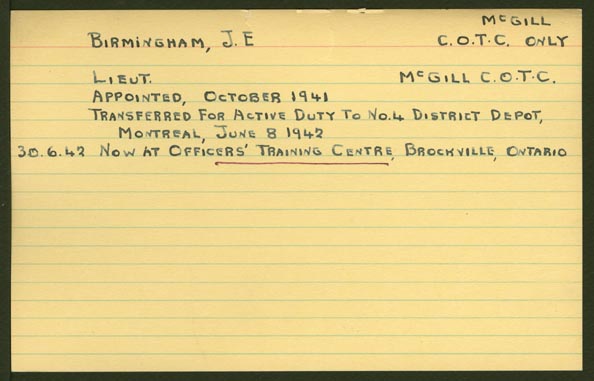 McGILL
BIRMINGHAM, J. E C.O.T.C. ONLY
LIEUT. McGILL C.O.T.C.
APPOINTED, OCTOBER 1941
TRANSFERRED FOR ACTIVE DUTY TO No.4 DISTRICT DEPOT,
MONTREAL, JUNE 8 1942
30.6.42 NOW AT OFFICERS' TRAINING CENTRE, BROCKVILLE, ONTARIO